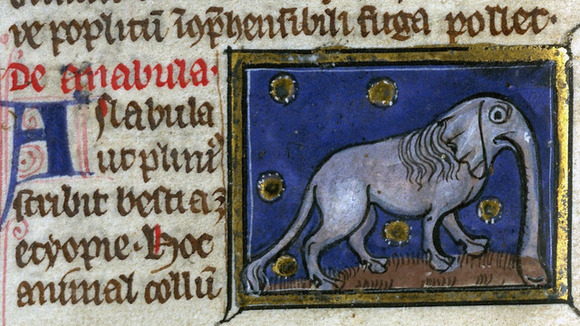 ve poplitū īꝯp̄hensibili fuga pollet·
De anabula·
Aslabula
ut plini
scribit bestiaꝫ
etyopie· Hoc
animal collū